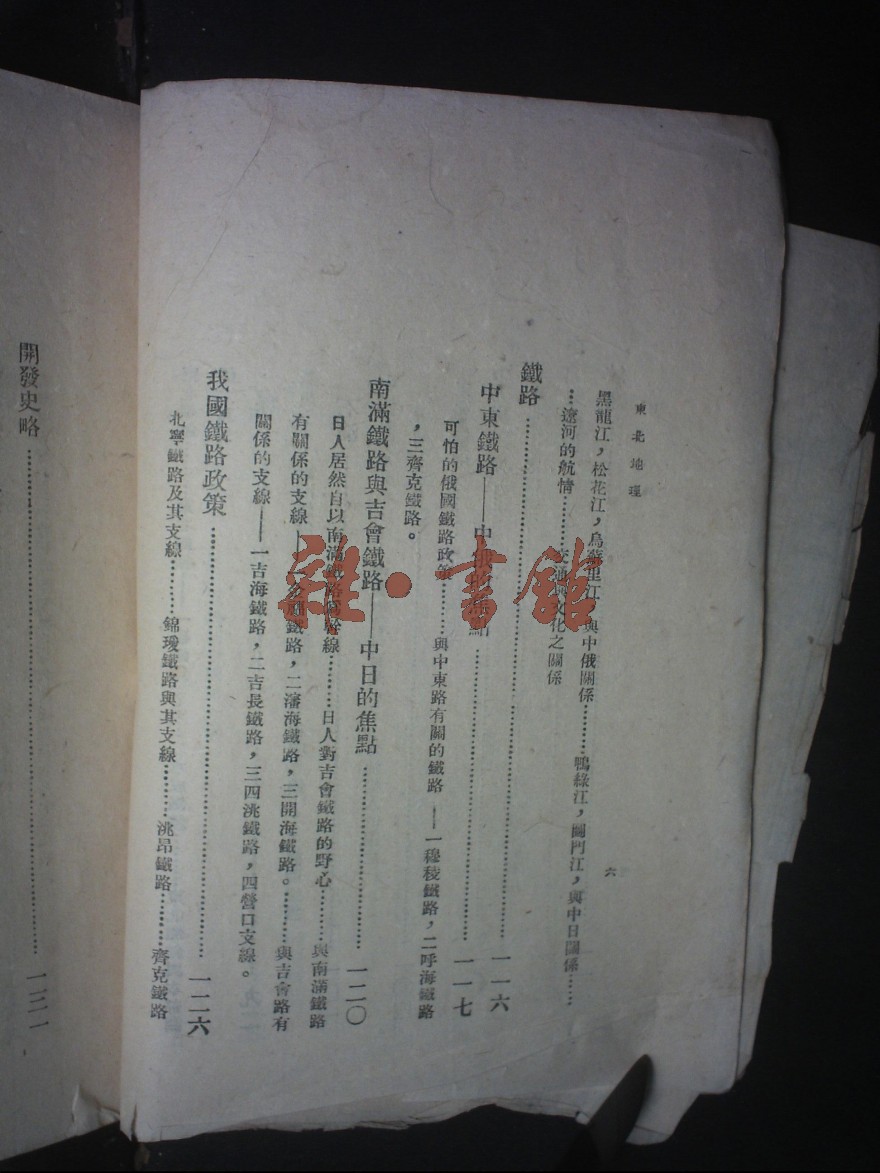 東北地理
六
黑龍江，松花江，烏蘇里江，與中俄關係………鴨綠江，圖們江，與中日關係……
…遼河的航情………交通與文化之關係
鐵路…………一一六
中東鐵路——中俄的焦點…………一一七
可怕的俄國鐵路政策………與中東路有關的鐵路——一穆稜鐵路，二呼海鐵路
，三齊克鐵路。
南滿鐵路與吉會鐵路——中日的焦點…………一二〇
日人居然自以南滿鐵路為幹線………日人對吉會鐵路的野心………與南滿鐵路
有關係的支線——一金福鐵路，二瀋海鐵路，三開海鐵路。………與吉會路有
關係的支線——一吉海鐵路，二吉長鐵路，三四洮鐵路，四營口支線。
我國鐵路政策…………一二六
北寧鐵路及其支線………錦璦鐵路與其支線………洮昂鐵路………齊克鐵路
開發史略…………一三一
雜·書館